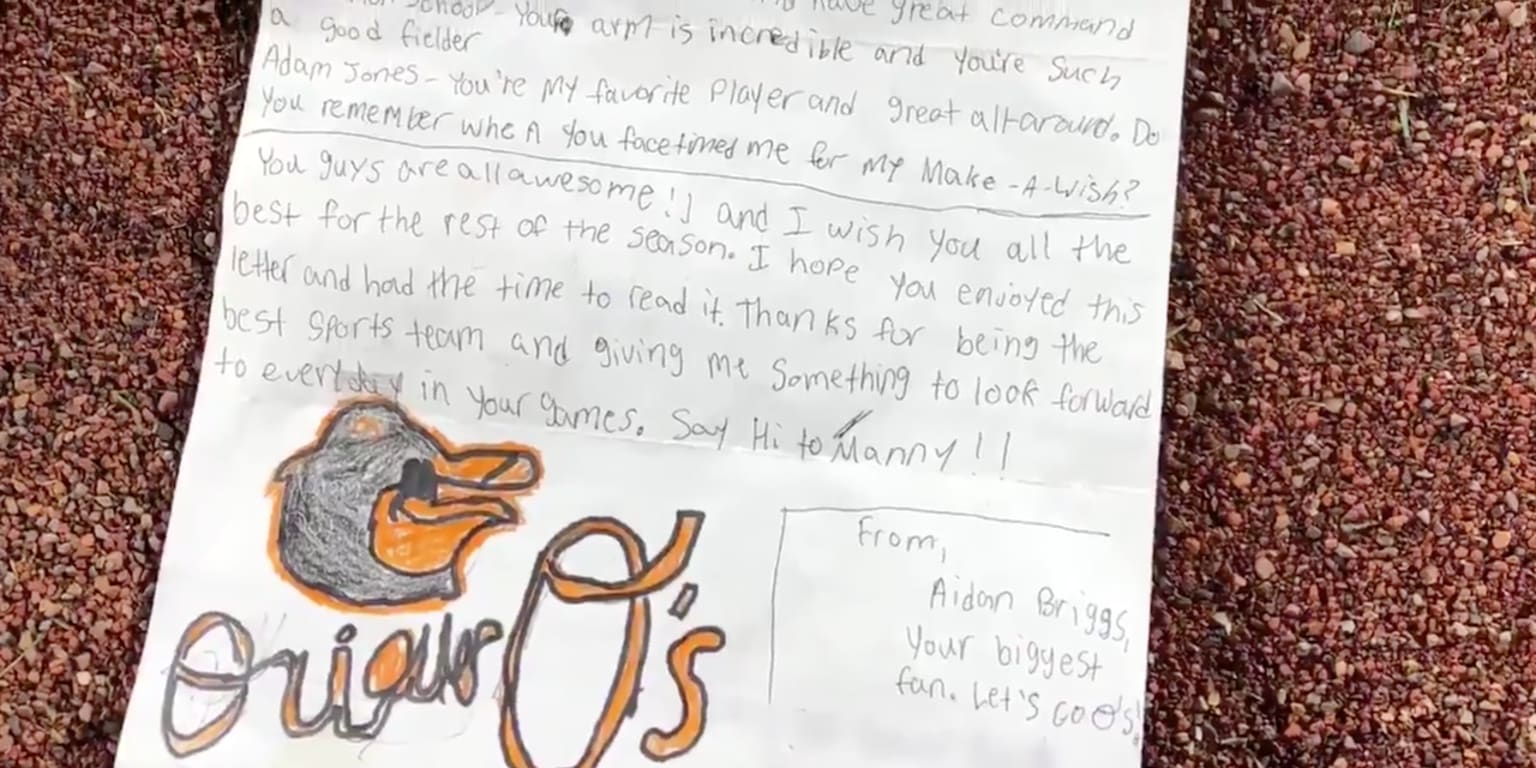 School - Your arm is incredible and you're such
have great command
a good fielder
Adam Jones - You're my favorite Player and great all-around. Do
You remember when you facetimed me for my Make-A-Wish?
You guys are all awesome!! and I wish you all the
best for the rest of the season. I hope you enjoyed this
letter and had the time to read it. Thanks for being the
best sports team and giving me something to look forward
to everyday in your games. Say Hi to Manny!!
Orioles
O's
From,
Aidan Briggs,
Your biggest
fan. Let's GO O's!